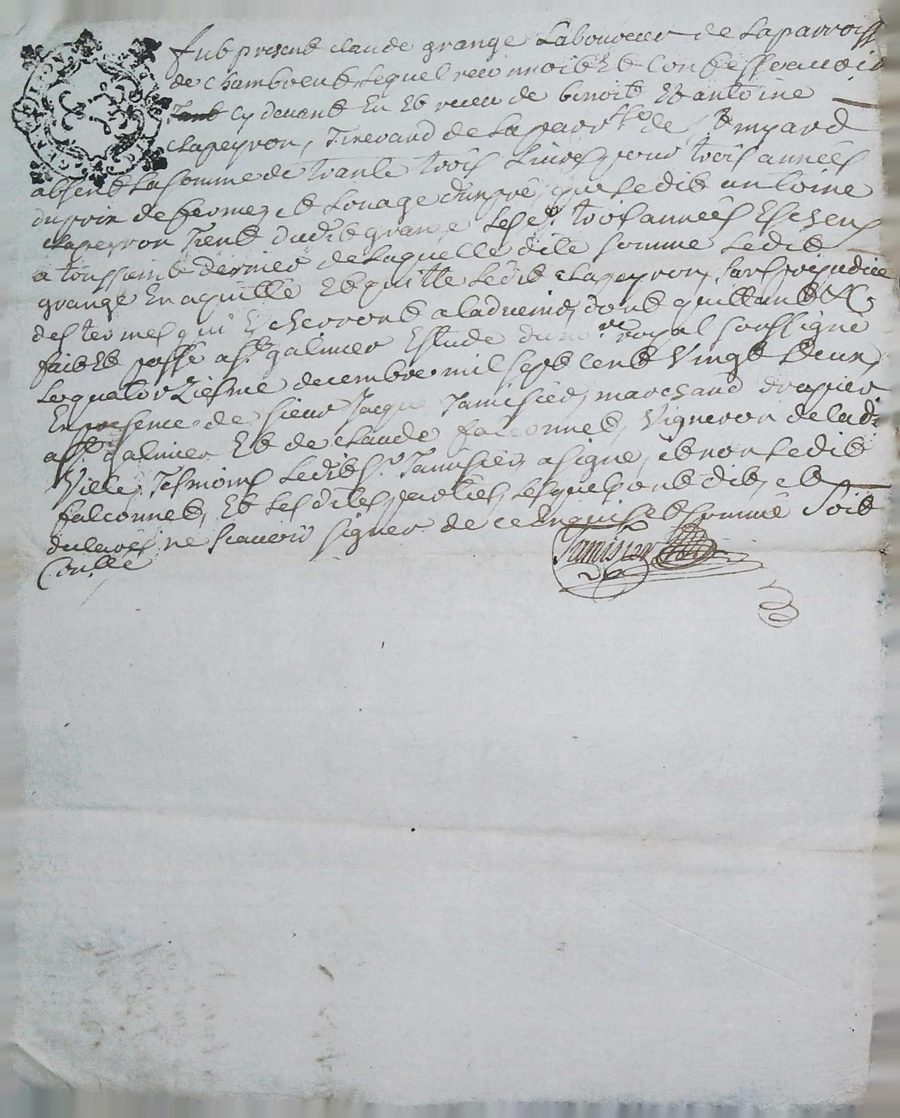 fut present claude grange Laboureur de La parroisse
de chambœuf Lequel reconnoit Et Confesse avoir
Tant cy devant Eu Et receu de benoist Et antoine
clapeyron, de La parrsse de
absent La somme de trante trois Livres pour trois années
du prix de ferme, et Louage d'un pré, que Ledit antoine
clapeyron Tient dudit grange Les trois années Escheus
a toussaint dernier de Laquelle dite somme Ledit
grange En aquitte Et quitte Ledit clapeyron, sans prejudice
des termes qui Echerront a ladvenir, dont quittance &c
fait Et passé a st galmier Estude du nore royal soussigné
Le quatorziesme decembre mil sept cent Vingt deux
En presence de sieur Jaque Tamisier, marchand drapier
a st galmier Et de claude falconnet, Vigneron de ladite
Ville, Tesmoins Ledit sr Tamisier a signé, et non Ledit
falconnet, Et Lesdites parties, Lesquels ont dit, et
declaré ne scavoir signer de ce Enquis et sommé Soit
Conllé
Tamisier